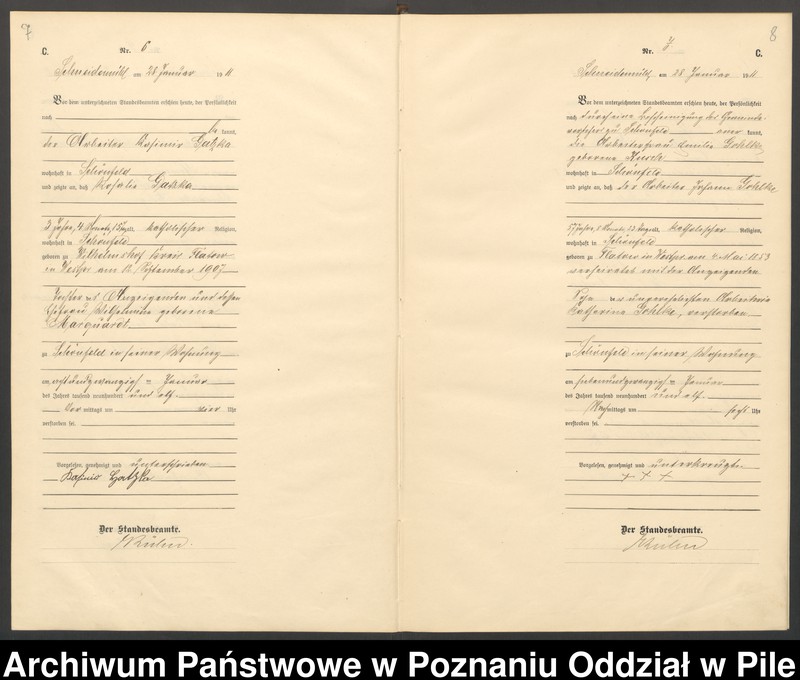 7
C.
Nr. 6
Schneidemühl am 28 Januar 1911
Vor dem unterzeichneten Standesbeamten erschien heute, der Persönlichkeit
nach
be kannt,
der Arbeiter Kasimir Gatzka
wohnhaft in Schönfeld
und zeigte an, daß Rosalie Gatzka
3 Jahre, 4 Monate, 15 Tg alt, katholischer Religion,
wohnhaft in Schönfeld
geboren zu Wilhelmshof Kreis Flatow
in Westpr am 12 September 1907
Tochter des Anzeigenden und dessen
Ehefrau Wilhelmine geborene
Marquardt
zu Schönfeld in seiner Wohnung
am achtundzwanzigsten Januar
des Jahres tausend neunhundert und elf
Vor mittags um vier Uhr
verstorben sei.
Vorgelesen, genehmigt und unterschrieben
Kasimir Gatzka
Der Standesbeamte.
8
Nr. 7
C.
Schneidemühl am 28 Januar 1911
Vor dem unterzeichneten Standesbeamten erschien heute, der Persönlichkeit
nach durch eine Bescheinigung des Gemeinde-
vorstehers zu Schönfeld aner kannt,
die Arbeiterfrau Emilie Gohlke
geborene
wohnhaft in Schönfeld
und zeigte an, daß der Arbeiter Johann Gohlke
57 Jahre, 8 Monate, 23 Tage alt, katholischer Religion,
wohnhaft in Schönfeld
geboren zu Flatow in Westpr am 4 Mai 1853
verheiratet mit der Anzeigenden
Sohn der unverehelichten Arbeiterin
Katharina Gohlke, verstorben
zu Schönfeld in seiner Wohnung
am siebenundzwanzigsten Januar
des Jahres tausend neunhundert und elf
Nachmittags um sechs Uhr
verstorben sei.
Vorgelesen, genehmigt und unterkreuzt
+ + +
Der Standesbeamte.
Archiwum Państwowe w Poznaniu Oddział w Pile